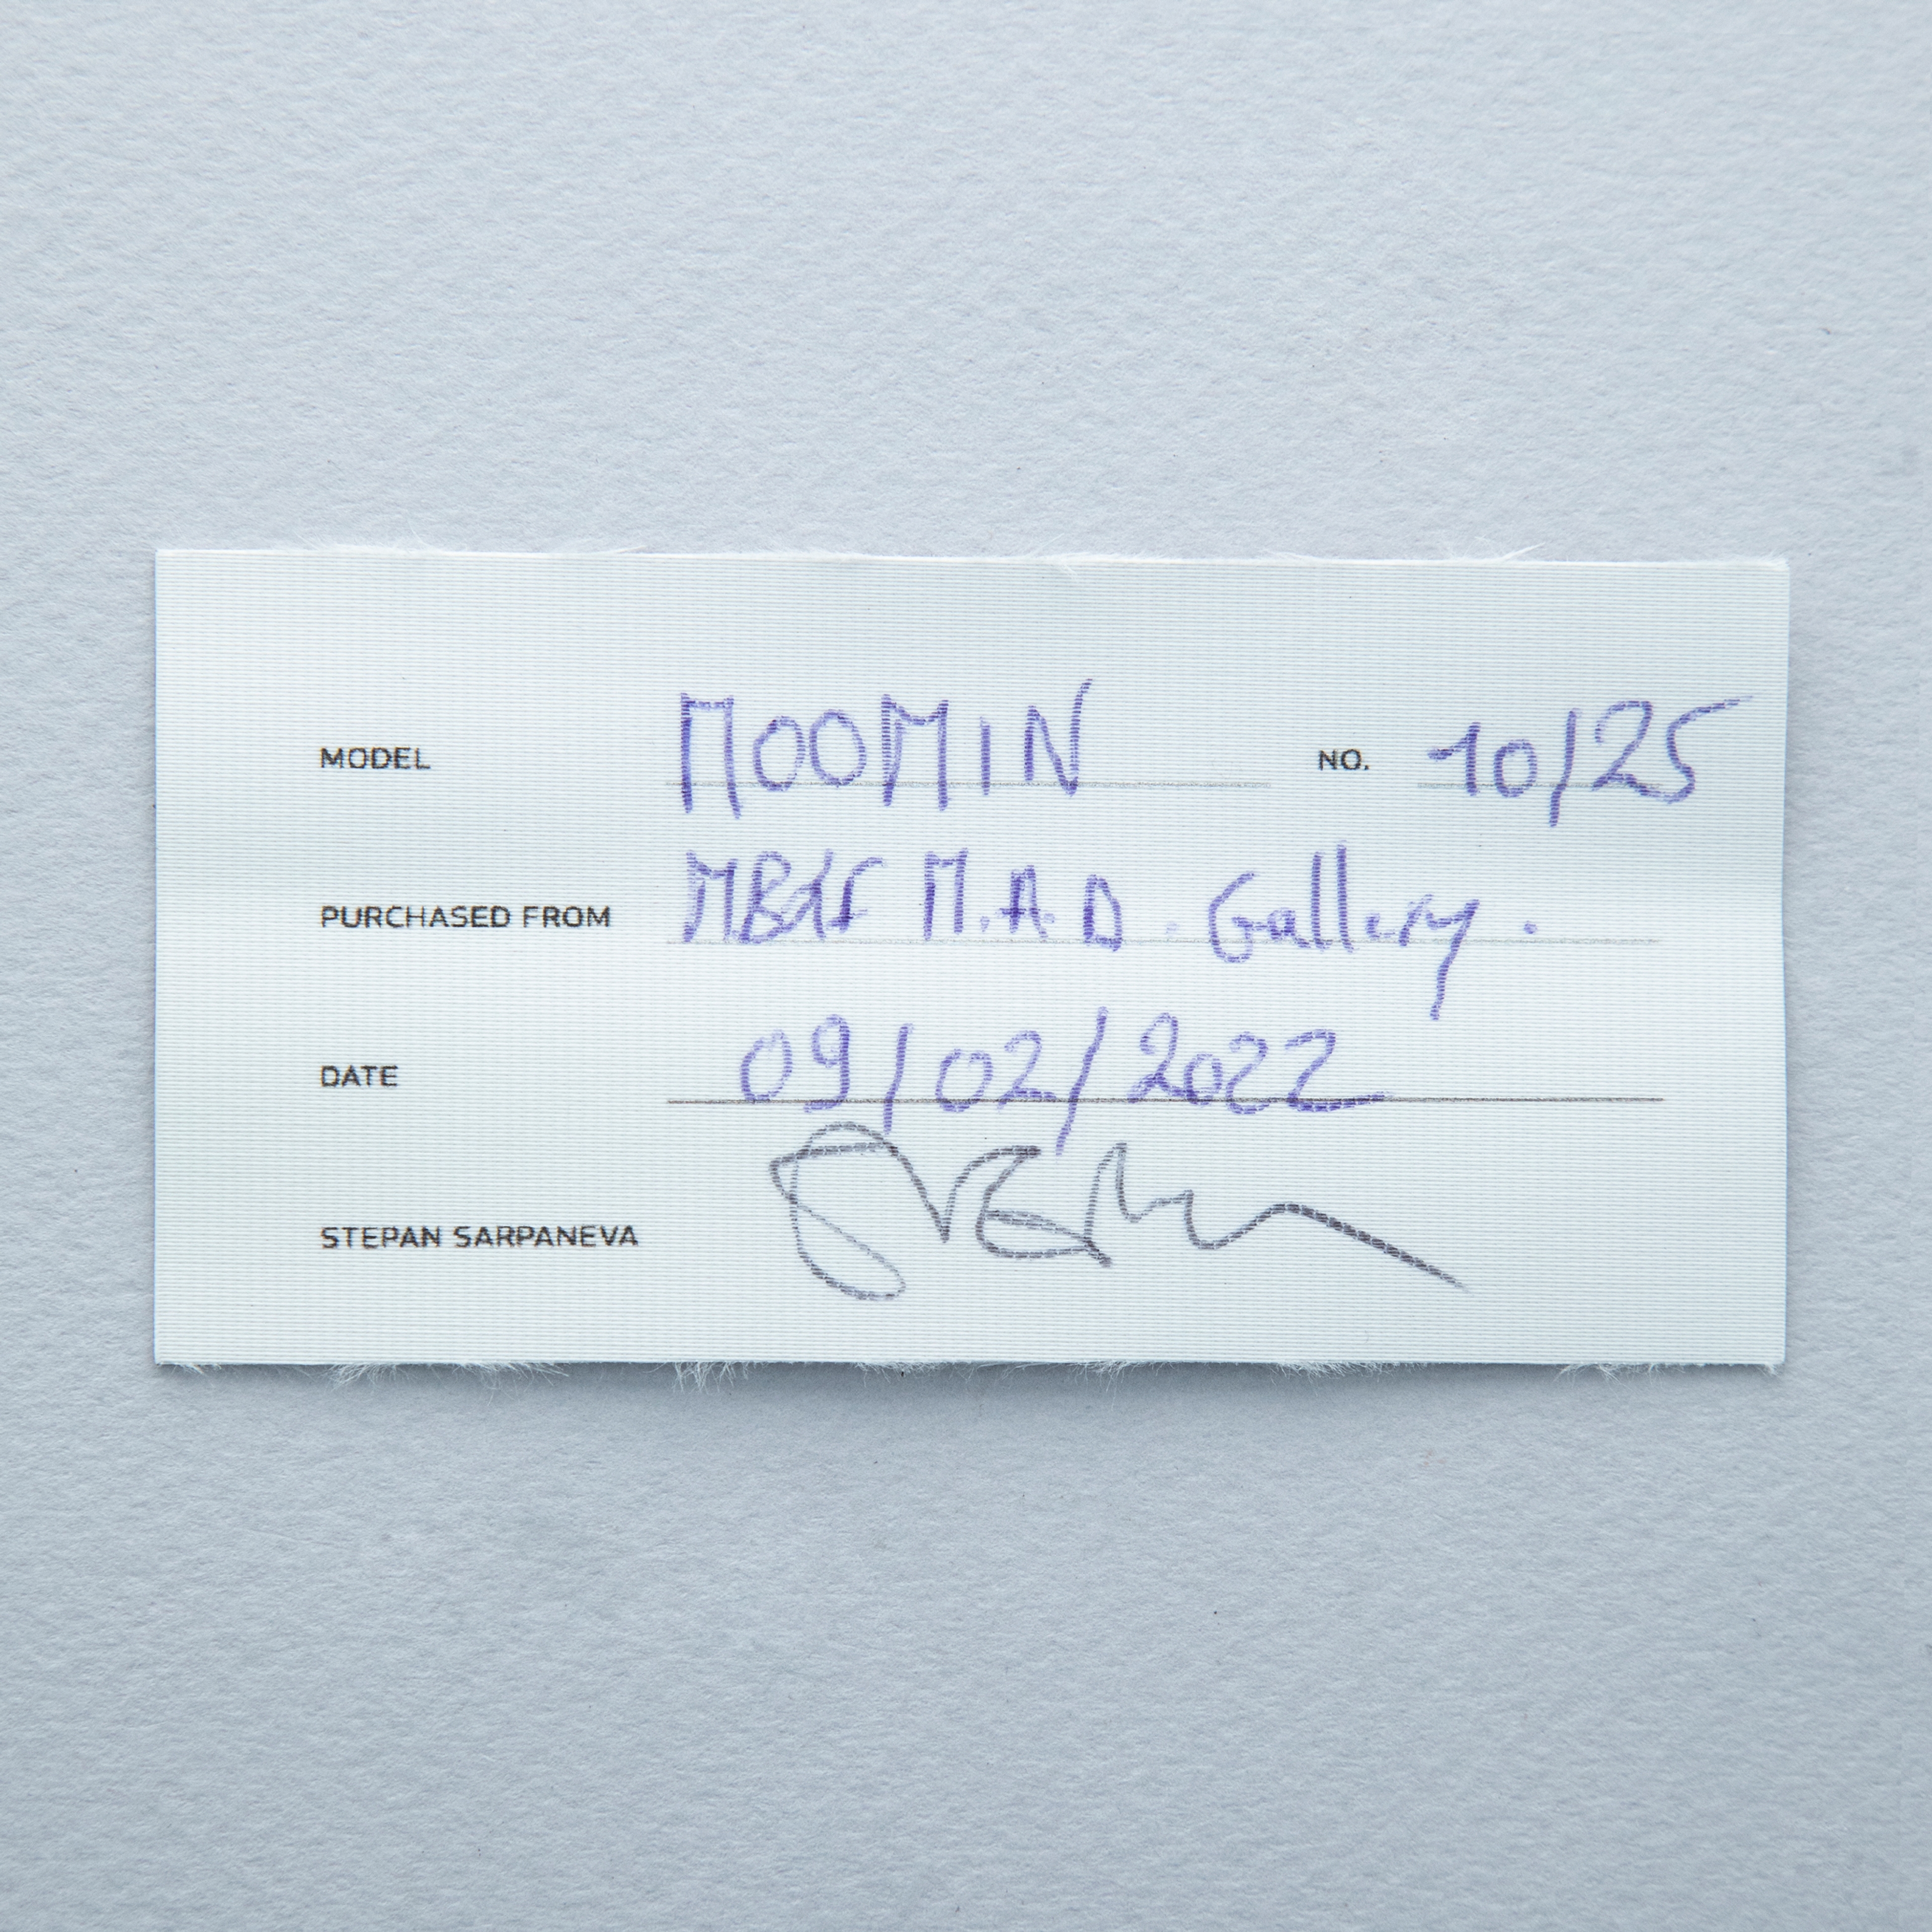 MODEL MOOMIN NO. 10/25
PURCHASED FROM MB&F M.A.D. Gallery.
DATE 09/02/2022
STEPAN SARPANEVA